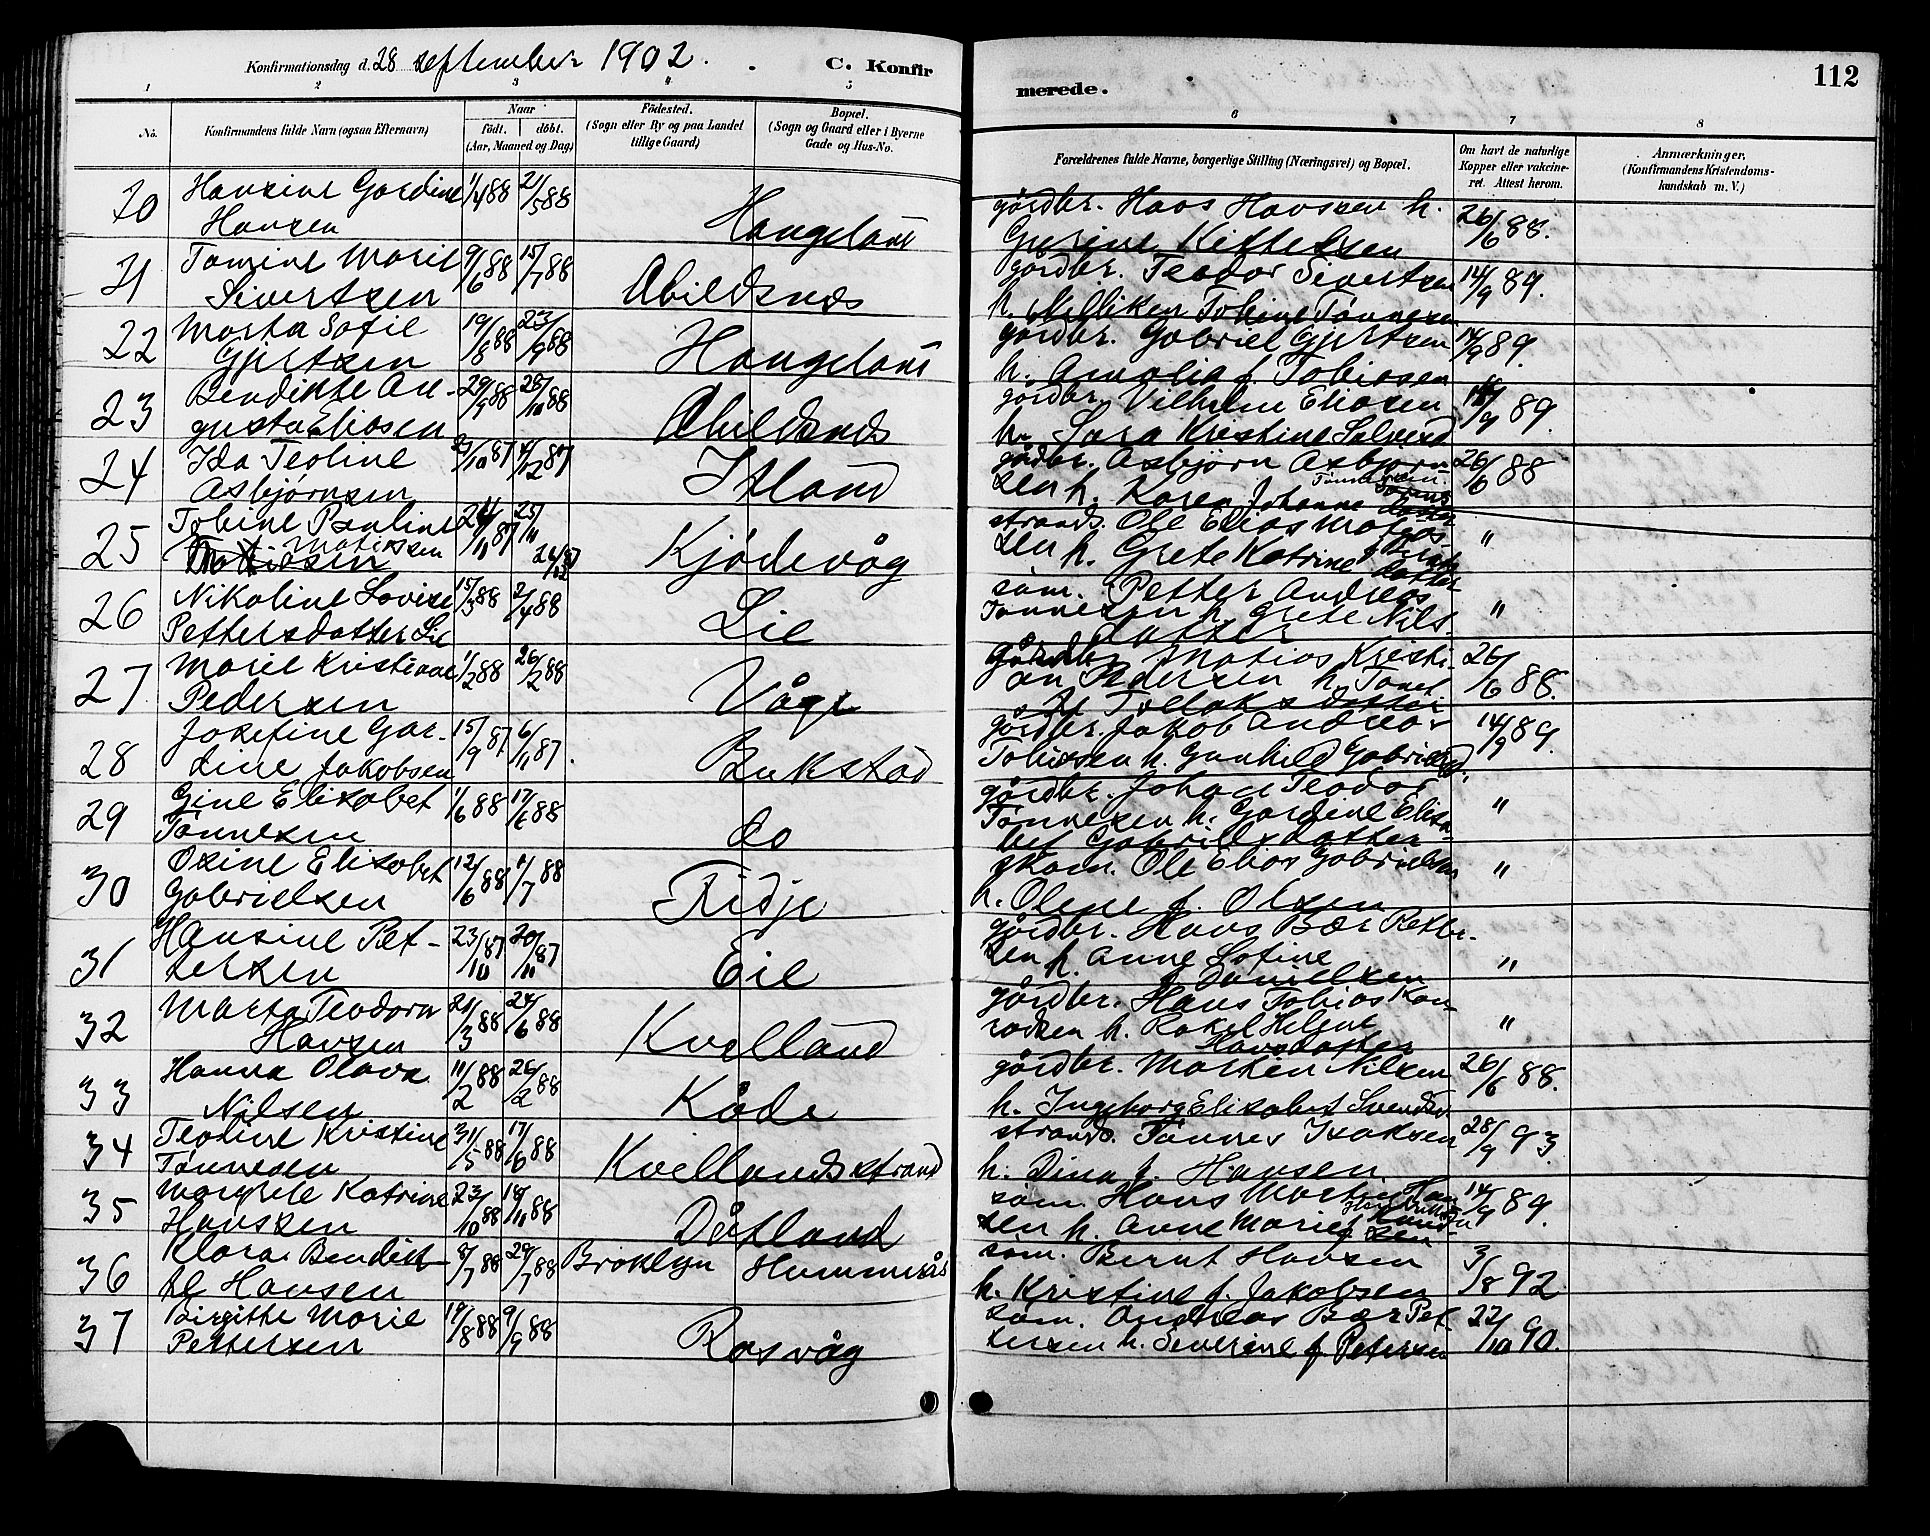 Konfirmationsdag d. 28 september 1902. C. Konfir
merede. 112
1 2 3 4 5 6 7 8
No. Konfirmandens fulde Navn (ogsaa Efternavn) Naar født. døbt. (Aar, Maaned og Dag) Fødested. (Sogn eller By og paa Landet tillige Gaard) Bopæl. (Sogn og Gaard eller i Byerne Gade og Hus-No.
Forældrenes fulde Navne, borgerlige Stilling (Næringsvei) og Bopæl. Om havt de naturlige Kopper eller vakcineret. Attest herom. Anmærkninger. (Konfirmandens Kristendomskundskab m. V.)
20 Hansine Gordine 11/4 88 21/5 88 Haugeland gårdbr. Hans Hanssen h. 26/6 88.
Hansen Gurine Kittelsen
21 Tomine Marie 9/6 88 15/7 88 Abildsnes gårdbr. Teodor Sivertsen 14/9 89.
Sivertsen h. Milliken Tobine Tønnesen
22 Marta Sofie 19/8 88 23/9 88 Haugeland gårdbr. Gabriel Gjertsen 14/9 89.
Gjertsen h. Amalia f. Tobiasen
23 Bendikte Au- 29/9 88 28/10 88 Abildsnes gårdbr. Vilhelm Eliasen 14/9 89.
gusta Eliasen h. Sara Kristine
24 Ida Teoline /10 87 4/12 87 Itland gårdbr. Asbjørn Asbjørn- 26/6 88
Asbjørnsen sen h. Karen Johanne
25 Tobine Pauline 24/10 87 25/11 Kjødevåg strands. Ole Elias Matias "
Matiassen 26/12 87 sen h. Grete Katrine datter
26 Nikoline Lovise 15/3 88 2/4 88 Lie søm. Petter Andreas
Pettersdatter Lie Tønnesen h. Grete Nils- "
datter
27 Marie Kristiane 1/2 88 26/2 88 Våge gårdbr. Matias Kristi- 26/6 88.
Pedersen an Pedersen h. Tonet.
Tollaksdatter
28 Josefine Gor- 15/9 87 6/11 87. Bukstad gårdbr. Jakob Andreas 14/9 89.
dine Jakobsen Tobiasen h. Gunhild Gabrielsd.
29 Gine Elisabet 1/6 88 17/6 88 do gårdbr. Johan Teodor "
Tønnesen Tønnesen h. Gordine Elisa-
bet Gabrielsdatter
30 Osine Elisabet 12/6 88 1/7 88 Fidje skom. Ole Elias Gabrielsen "
Gabrielsen h. Olene f. Olsen
31 Hansine Pet- 23/10 87 20/11 87 Eie gårdbr. Hans Bær Petter-
tersen sen h. Anne Sofine "
f. Danielsen
32 Marta Teodora 21/3 88 24/6 88 Kvelland gårdbr. Hans Tobias Kon-
Hansen radsen h. Rakel Helene "
Hansdatter
33 Hanna Olava 11/2 88 26/2 88 Kåde gårdbr. Morten Nilsen 26/6 88.
Nilsen h. Ingeborg Elisabet Svendsd.
34 Teodine Kristine 31/5 88 17/6 88 Kvellandsstrand strands. Tønnes Isaksen 28/9 93.
Tønnesen h. Dina f. Hansen.
35 Margrete Katrine 23/10 88 18/11 88 Dåtland søm. Hans Martin Han 14/9 89.
Hanssen sen h. Anne Marie f.
36 Klara Bendik- 8/7 88 29/7 88 Broklyn Hummerås søm. Bernt Hansen 3/8 92
te Hansen h. Kristine f. Jakobsen
37 Birgitte Marie 19/8 88 9/9 88 Rasvåg søm. Andreas Bær Pet- 22/10 90.
Pettersen tersen h. Severine f. Petersen